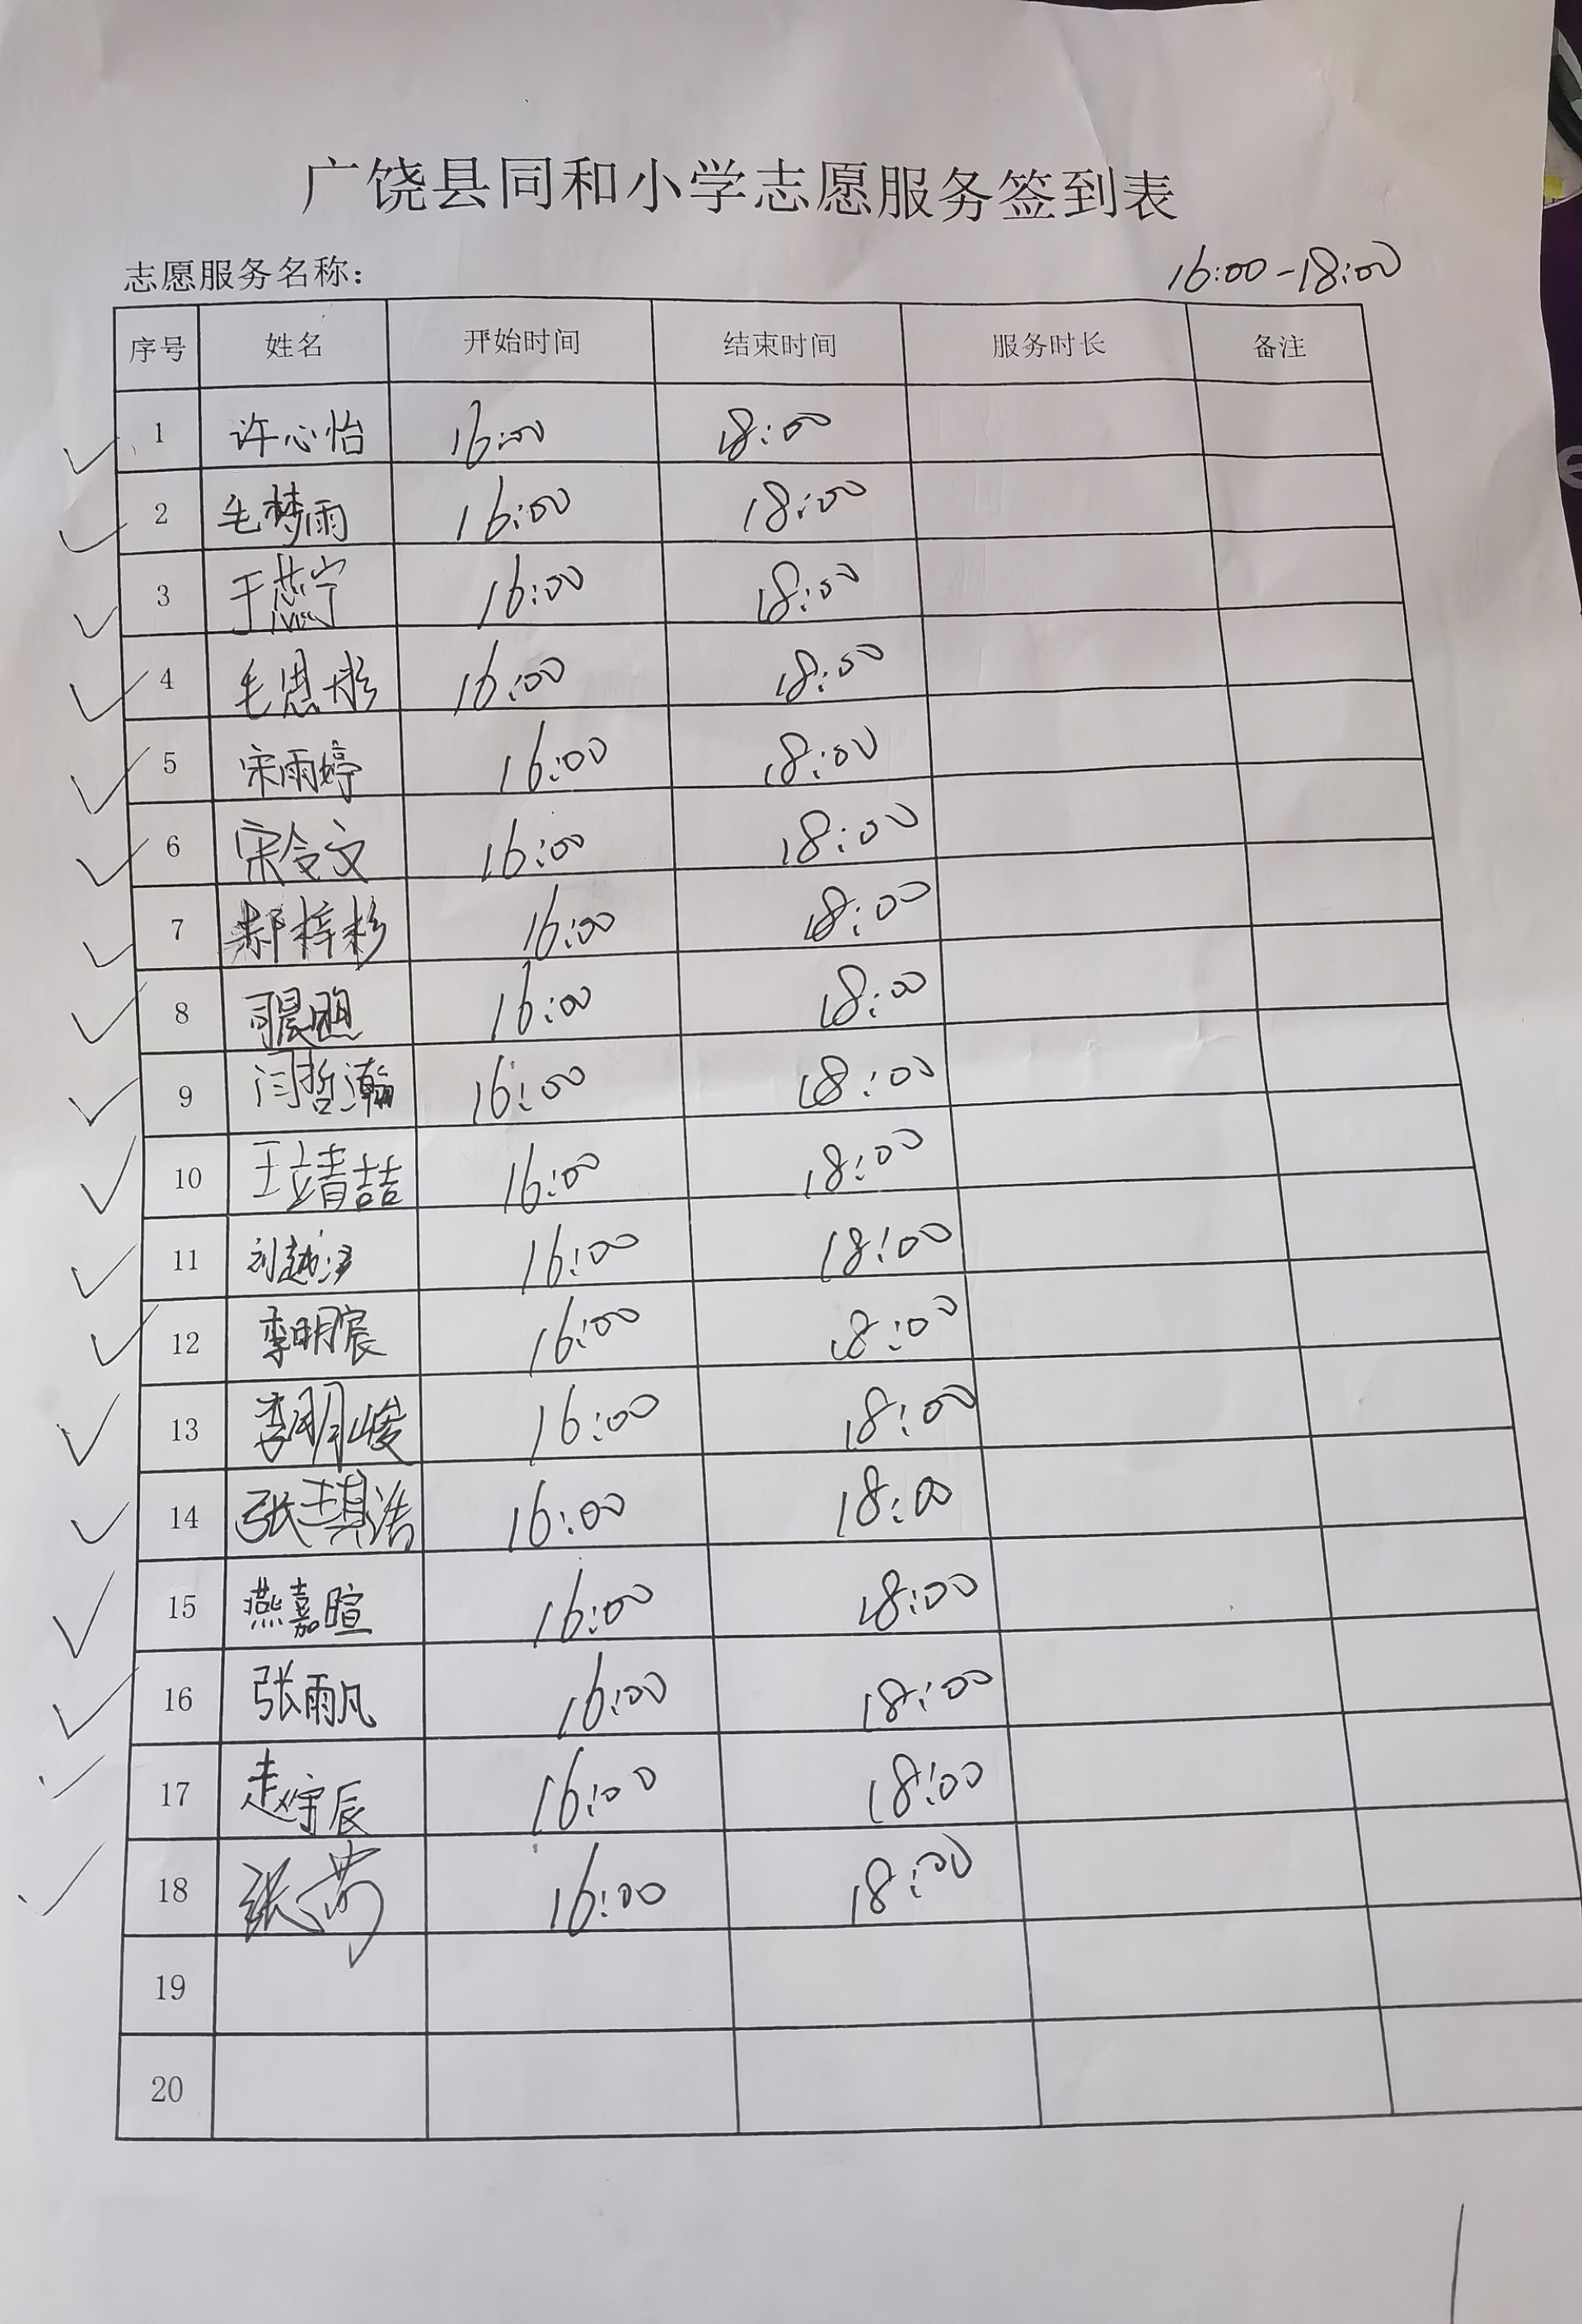 广饶县同和小学志愿服务签到表
志愿服务名称： 16:00-18:00
序号 姓名 开始时间 结束时间 服务时长 备注
1 许心怡 16:00 18:00
2 毛梦雨 16:00 18:00
3 于燕宁 16:00 18:00
4 毛思彤 16:00 18:00
5 宋雨婷 16:00 18:00
6 宋令文 16:00 18:00
7 郝梓杉 16:00 18:00
8 16:00 18:00
9 闫哲瀚 16:00 18:00
10 王靖喆 16:00 18:00
11 刘越泽 16:00 18:00
12 李明宸 16:00 18:00
13 李明峻 16:00 18:00
14 张琪浩 16:00 18:00
15 燕嘉暄 16:00 18:00
16 张雨凡 16:00 18:00
17 赵宇辰 16:00 18:00
18 16:00 18:00
19
20